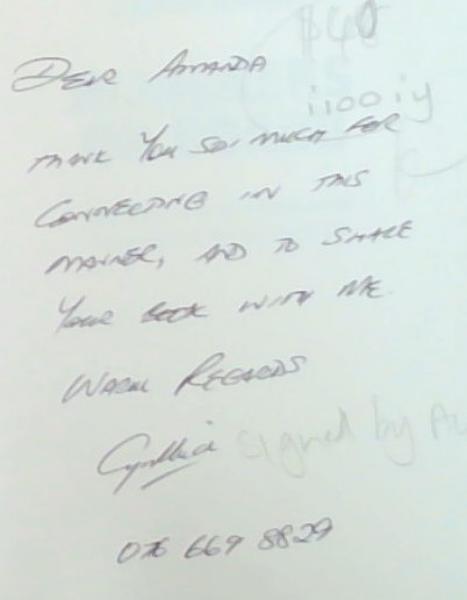 $40
Dear Amanda
iiooiy
Thank you so, much for
connecting in this
manner, and to share
your book with me.
Warm Regards
Cynthia
signed by Au
076 669 8829